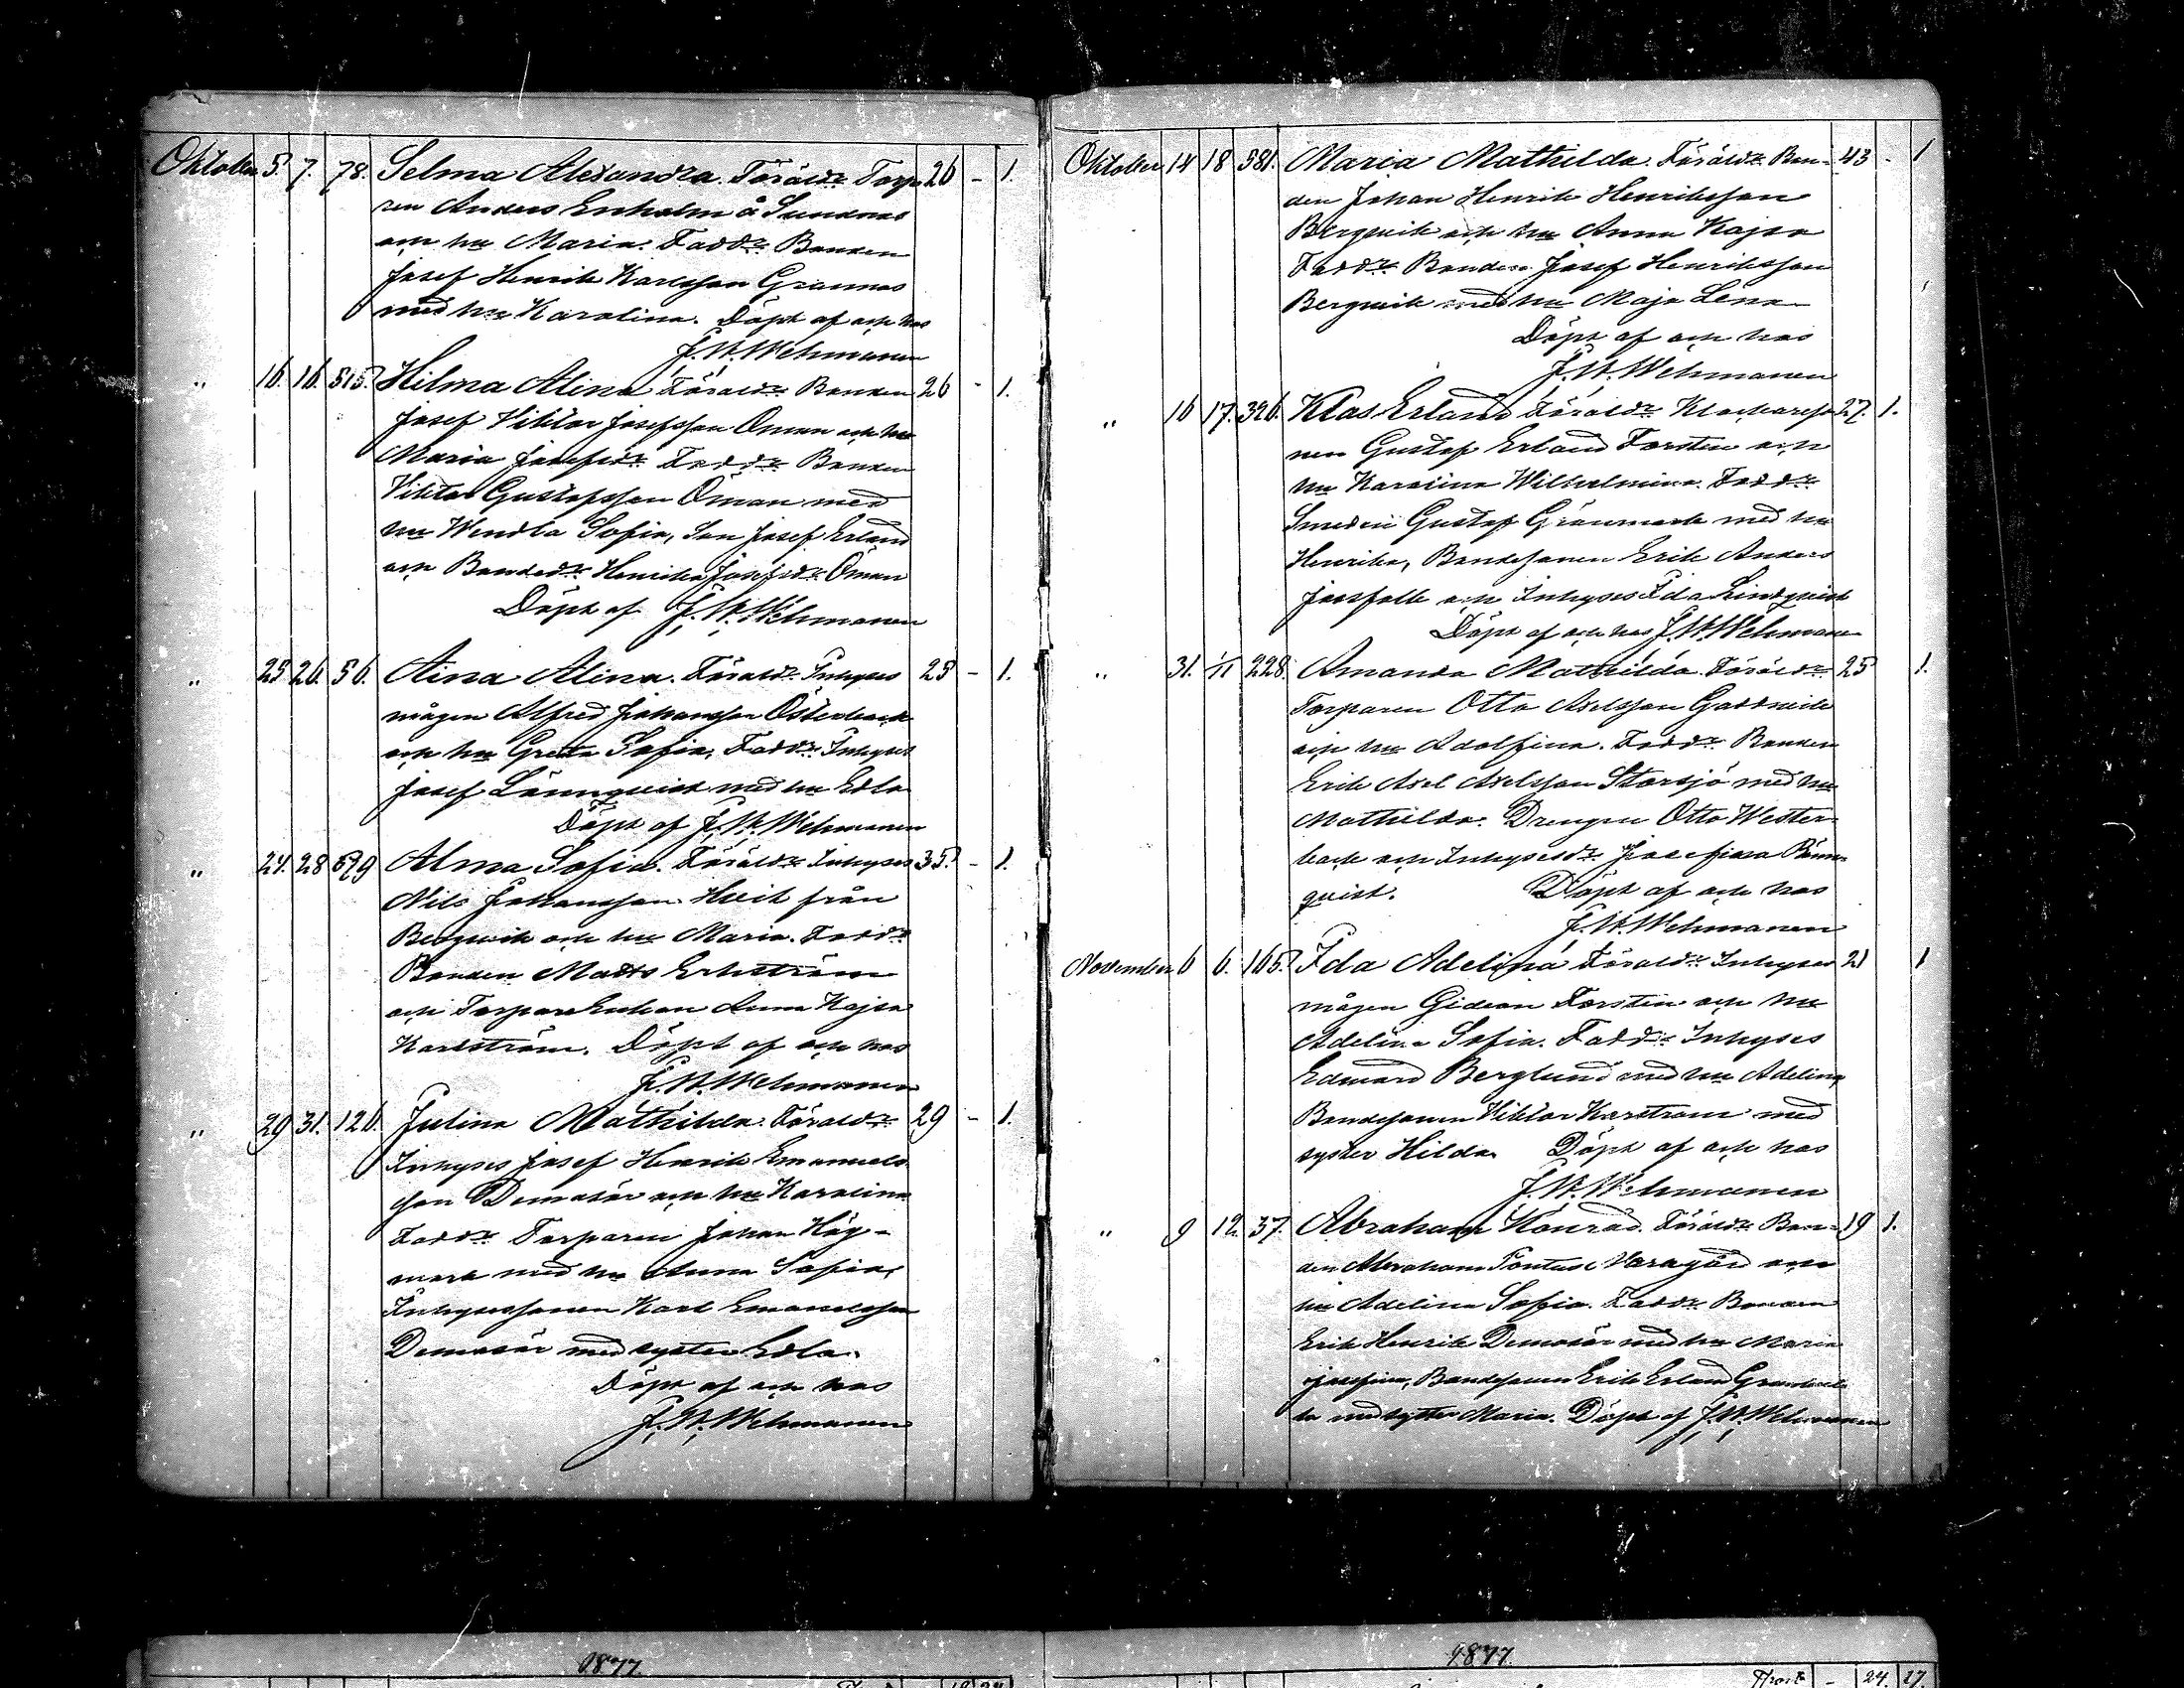 Oktober 5. 7. 78. Selma Alexandra. Föräldr. Torpa 26 - 1.
ren Anders Enholm å Sundnäs
och hu Maria. Faddr. Bonden
Josef Henrik Karlsson Grannas
med hu Karolina. Döpt af och hos
J. W. Wehmanen
" 16. 16. 515. Hilma Alina Föräldr. Bonden 26 - 1.
Josef Viktor Josefsson Öman och hu
Maria Josefsdr. Faddr. Bonden
Viktor Gustafsson Öman med
hu Wendla Sofia, Son Josef Erland
och Bondedr. Henrika Josefsdr. Öman
Döpt af J. W. Wehmanen
" 25 26. 56. Aina Alina. Föräldr. Inhyses 25 - 1.
mågen Alfred Johansson Österback
och hu Greta Sofia, Faddr. Inhyses
Josef Lönnqvist med hu Edla
Döpt af J. W. Wehmanen
" 24. 28 679 Alma Sofia. Föräldr. Inhyses 35. - 1.
Nils Johansson Hvit från
Bergwik och hu Maria. Faddr.
Bonden Matts Erkström
och Torpare Enkan Anna Kajsa
Karlström. Döpt af och hos
J. W. Wehmanen
" 29 31. 126. Julina Mathilda. Föräldr. 29 - 1.
Inhyses Josef Henrik Emanuels
son Demasär och hu Karolina
Faddr. Torparen Johan Hög-
mark med hu Anna Sofia,
Inhysessonen Karl Emanuelsson
Demasär med syster Edla.
Döpt af och hos
J. W. Wehmanen
Oktober 14 18 581. Maria Mathilda. Föräldr. Bon- 43 - 1
den Johan Henrik Henriksson
Bergwik och hu Anna Kajsa
Faddr. Bonden Josef Henriksson
Bergwik med hu Maja Lena
Döpt af och hos
J. W. Wehmanen
" 16 17. 326. Klas Erland Föräldr. Klockareso 27. 1.
nen Gustaf Erland Forstén och
hu Karolina Wilhelmina. Faddr.
Smeden Gustaf Grönmark med hu
Henrika, Bondesonen Erik Anders
Jossfolk och Inhyses Ida Lindqvist
Döpt af och hos J. W. Wehmanen
" 31. 1/11 228. Amanda Mathilda. Föräldr. 25 1.
Torparen Otto Axelsson Gaddwik
och hu Adolfina. Faddr. Bonden
Erik Axel Axelsson Storsjö med hu
Mathilda. Drengen Otto Wester-
back och Inhysesdr. Josefina Rönn-
quist. Döpt af och hos
J. W. Wehmanen
November 6 6. 165. Ida Adelina Föräldr. Inhyses 21 1
mågen Gideon Forstén och hu
Adelina Sofia. Faddr. Inhyses
Edward Berglund med hu Adelina,
Bondesonen Viktor Karström med
syster Hilda. Döpt af och hos
J. W. Wehmanen
" 9 12. 37. Abraham Konrad. Föräldr. Bon- 19 1.
den Abraham Pontus Varagård och
hu Adelina Sofia. Faddr. Bonden
Erik Henrik Demasär med hu Maria
Josefina, Bondesonen Erik Erland
med syster Maria. Döpt af J. W. Wehmanen
1877
1877
24. 27.